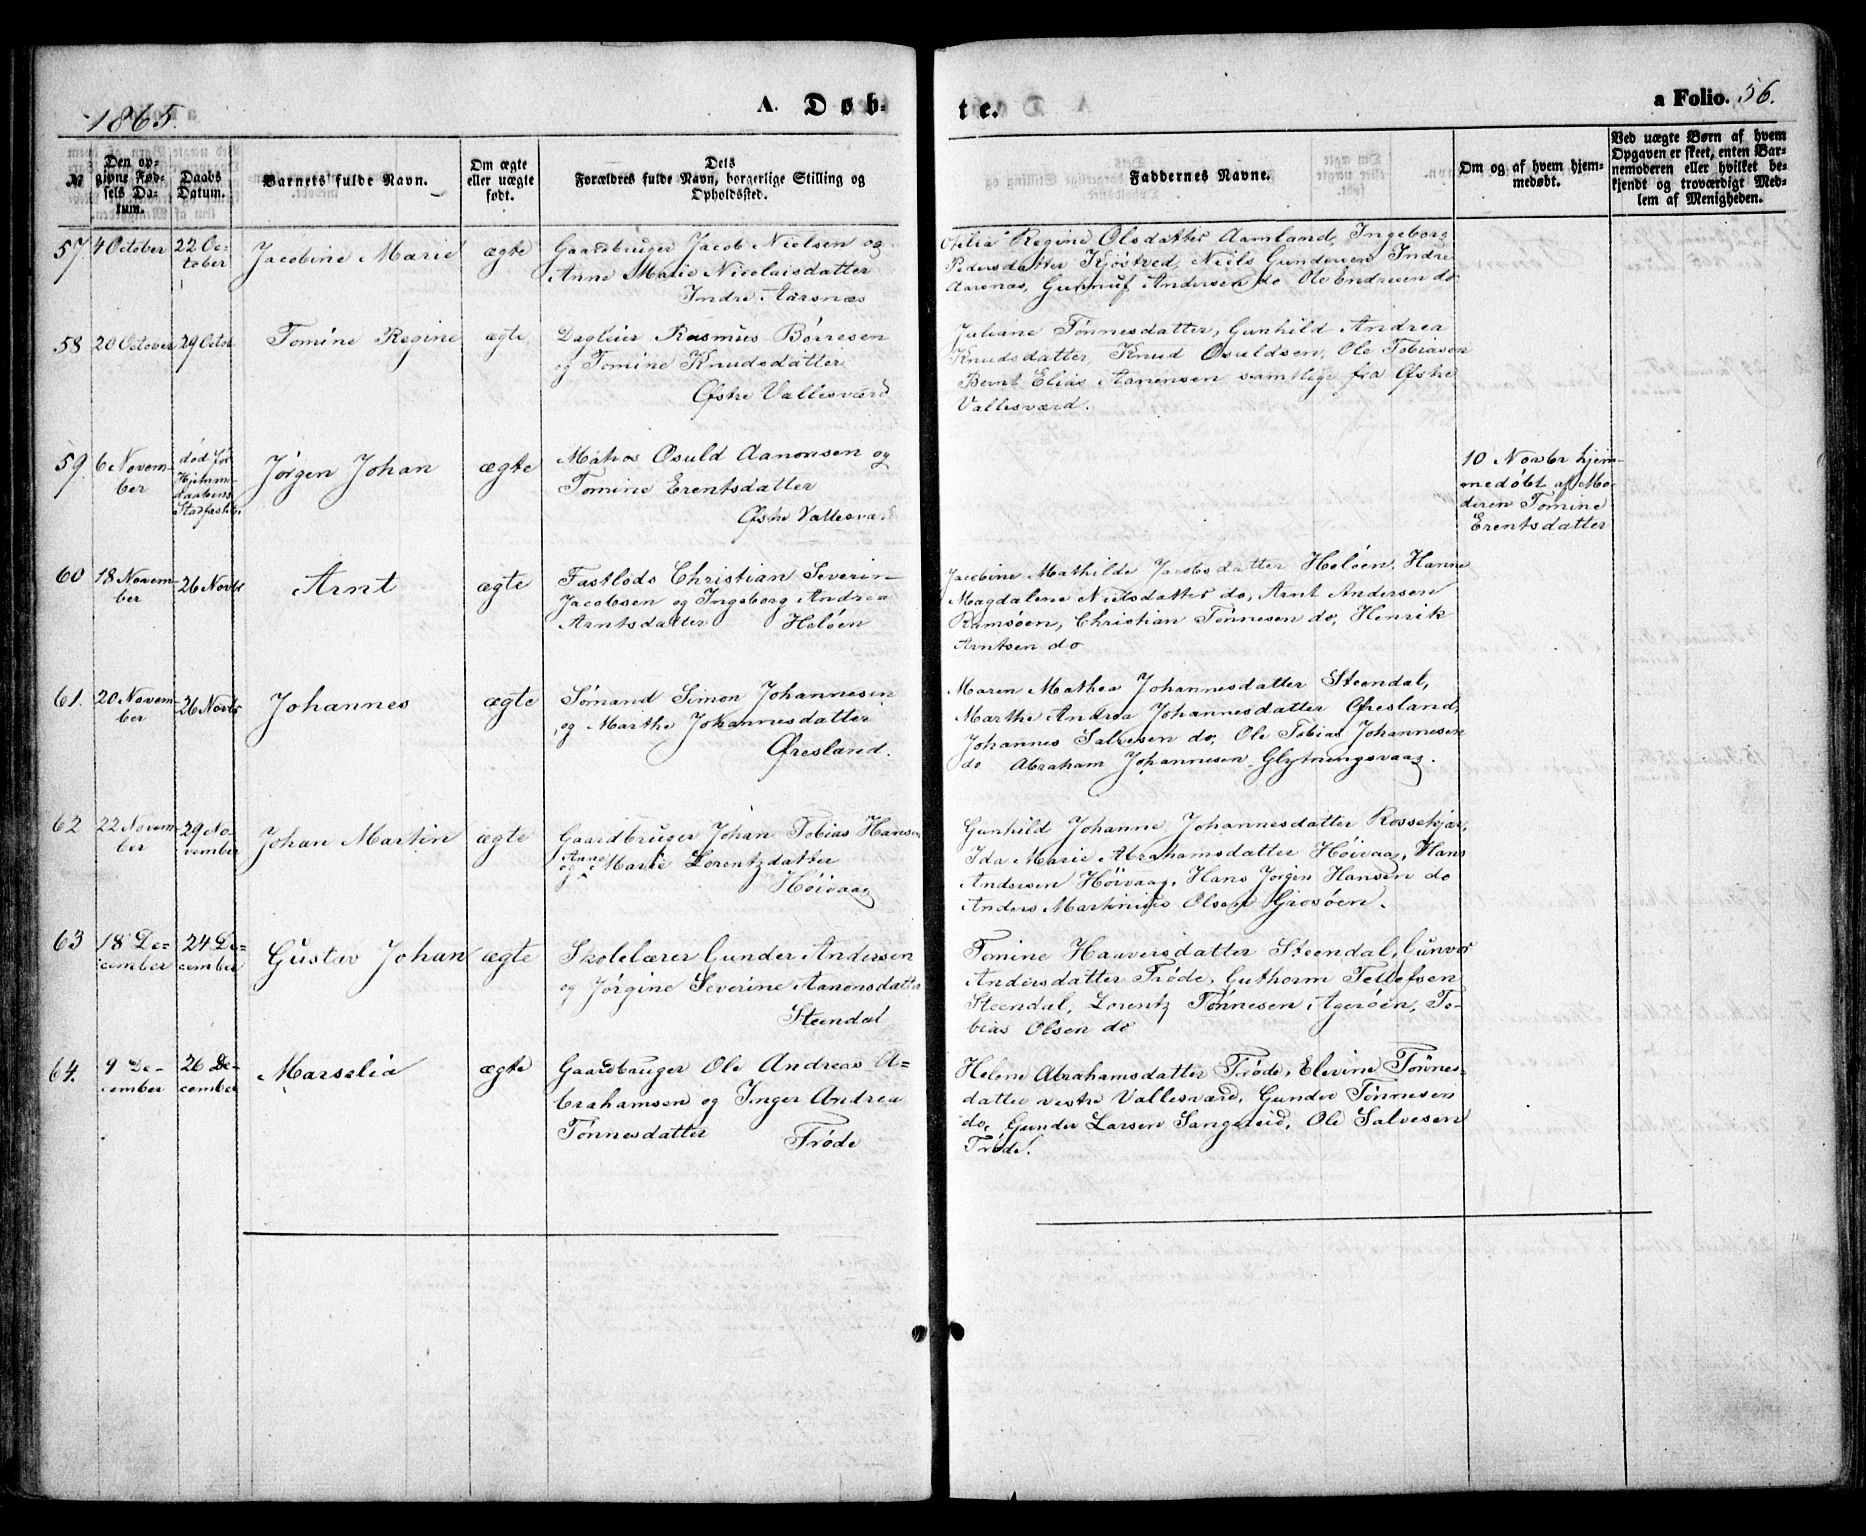 1865.
A. Døb-
te.
a Folio. 56.
No
Den op-
givne Fød-
sels Da-
tum.
Daabs
Datum.
Barnets fulde Navn.
Om ægte
eller uægte
født.
Dets
Forældres fulde Navn, borgerlige Stilling og
Opholdssted.
Faddernes Navne.
Om og af hvem hjem-
medøbt.
Ved uægte Børn af hvem
Opgaven er skeet, enten Bar-
nemoderen eller hvilket be-
kjendt og troværdigt Med-
lem af Menigheden.
57 4 October
22 Oc-
tober
Jacobine Marie
ægte
Gaardbruger Jacob Nielsen og
Anne Marie Nicolaisdatter
Indre Aarsnæs
Otilia Regine Olsdatter Aamland, Ingeborg
Pedersdatter Kjøstved, Niels Gundersen Indre
Aarsnæs, Gunnuf Andersen do Ole Endresen do
58 20 October 29 Octob
Tomine Regine
ægte
Dagleier Rasmus Børresen
og Tomine Knudsdatter
Østre Vallesværd
Juliane Tønnesdatter, Gunhild Andrea
Knudsdatter, Knud Osuldsen, Ole Tobiasen
Bernt Elias Aanensen samtlige fra Østre
Vallesværd.
59 6 Novem-
ber
død før
Hjemme
daabens
Stadfæstelse
Jørgen Johan
ægte
Matros Osuld Aanonsen og
Tomine Erentsdatter
Østre Vallesværd
10 Novbr hjem-
medøbt af Mo-
deren Tomine
Erentsdatter
60 18 Novem-
ber
26 Novbr
Arnt
ægte
Fastlods Christian Severin
Jacobsen og Ingeborg Andrea
Arntsdatter Heløen
Jacobine Mathilde Jacobsdatter Heløen, Hanne
Magdalene Nielsdatter do, Arnt Andersen
Ramsøen, Christian Tønnesen do, Henrik
Arntsen do
61. 20 Novem-
ber
26 Novbr
Johannes
ægte
Sømand Simon Johannesen
og Marthe Johannesdatter
Øresland.
Maren Mathea Johannesdatter Steendal,
Marthe Andrea Johannesdatter Øresland,
Johannes Salvesen do, Ole Tobias Johannesen
do Abraham Johannesen Glytningsvaag.
62 22 Novem-
ber
29 No-
vember
Johan Martin
ægte
Gaardbruger Johan Tobias Hansen
og Anne Marie Lorentzdatter
Høivaag
Gunhild Johanne Johannesdatter Rossekjær,
Ida Marie Abrahamsdatter Høivaag, Hans
Andersen Høivaag, Hans Jørgen Hansen do
Anders Martinius Olsen Grosøen.
63 18 De-
cember
24 De-
cember
Gustav Johan
ægte
Skolelærer Gunder Andersen
og Jørgine Severine Aanonsdatter
Steendal
Tomine Hauversdatter Steendal, Gunvor
Andersdatter Trøde, Guthorm Tellefsen
Steendal, Lorentz Tønnesen Agerøen, To-
bias Olsen do
64. 9 De-
cember
26 De-
cember
Marselia
ægte
Gaardbruger Ole Andreas A-
brahamsen og Inger Andrea
Tønnesdatter Trøde
Helene Abrahamsdatter Trøde, Elevine Tønnes-
datter vestre Vallesværd, Gunder Tønnesen
do, Gunder Larsen Sangereid, Ole Salvesen
Trøde.